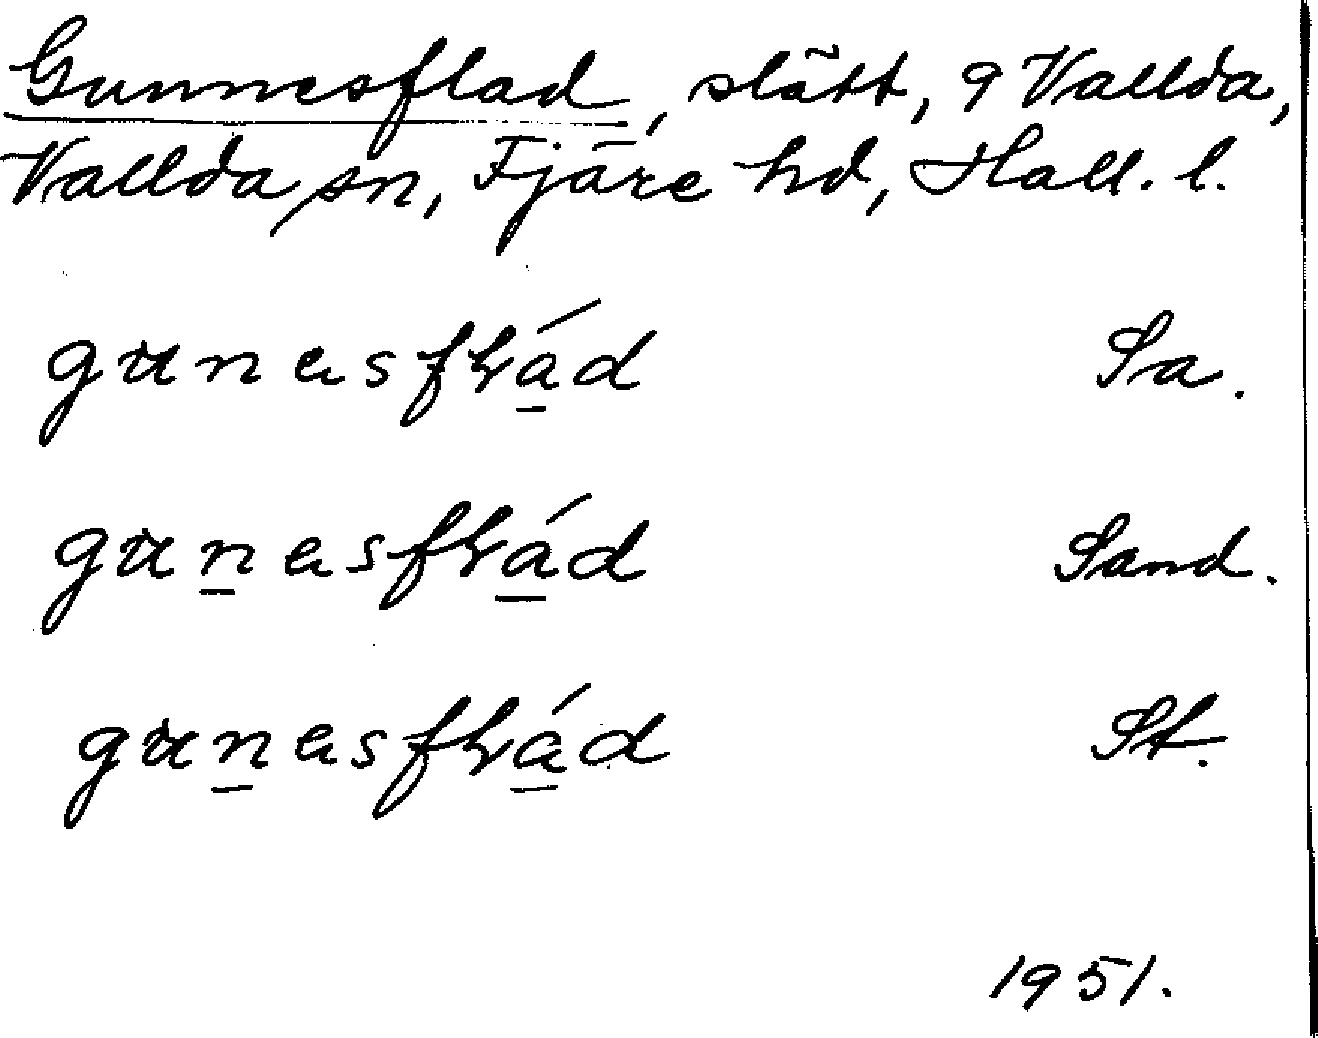 Gunnesflad, slätt, 9 Vallda,
Vallda sn, Fjäre hd, Hall. l.
gunasflád Sa.
gunasflád Sand.
gunasflád St.
1951.